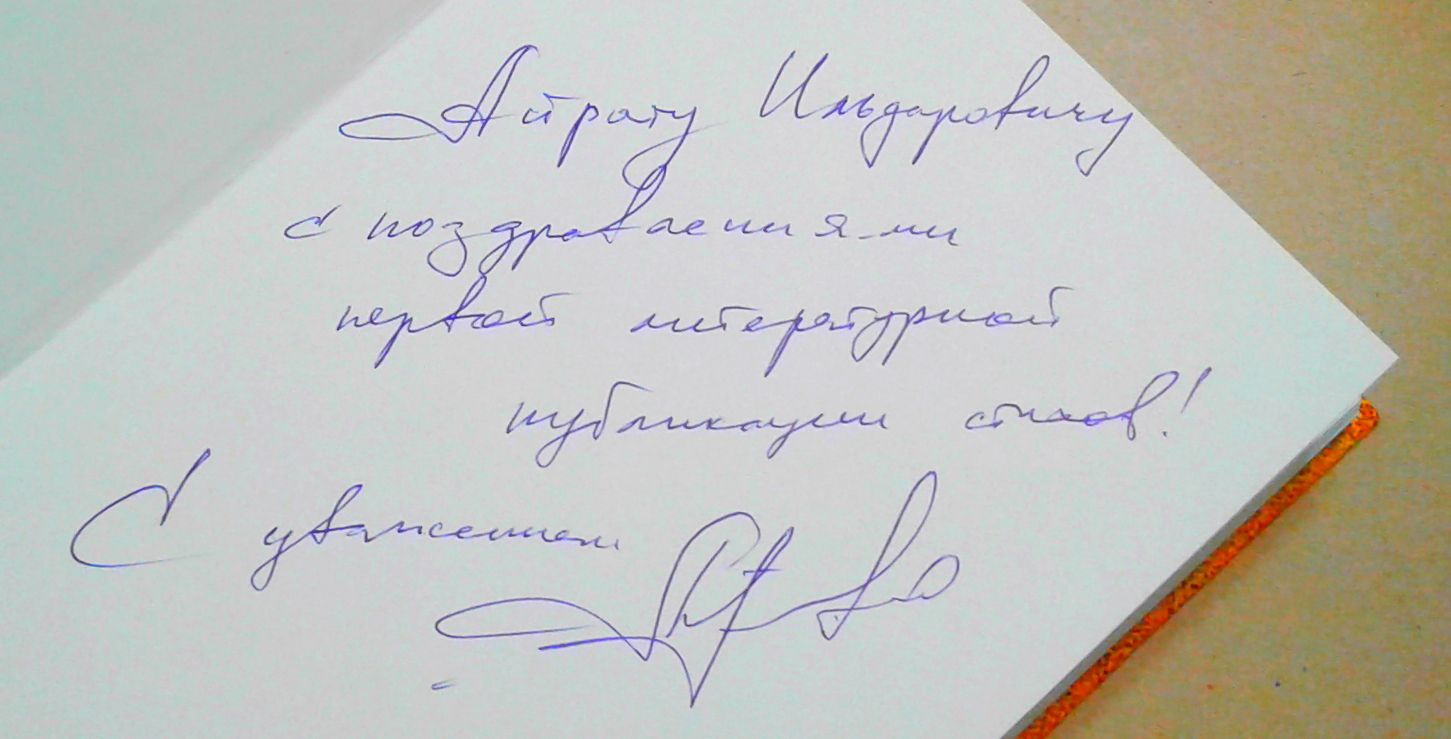 Айрату Ильдаровичу
с поздравлениями
первой литературной
публикации стихов!
С уважением